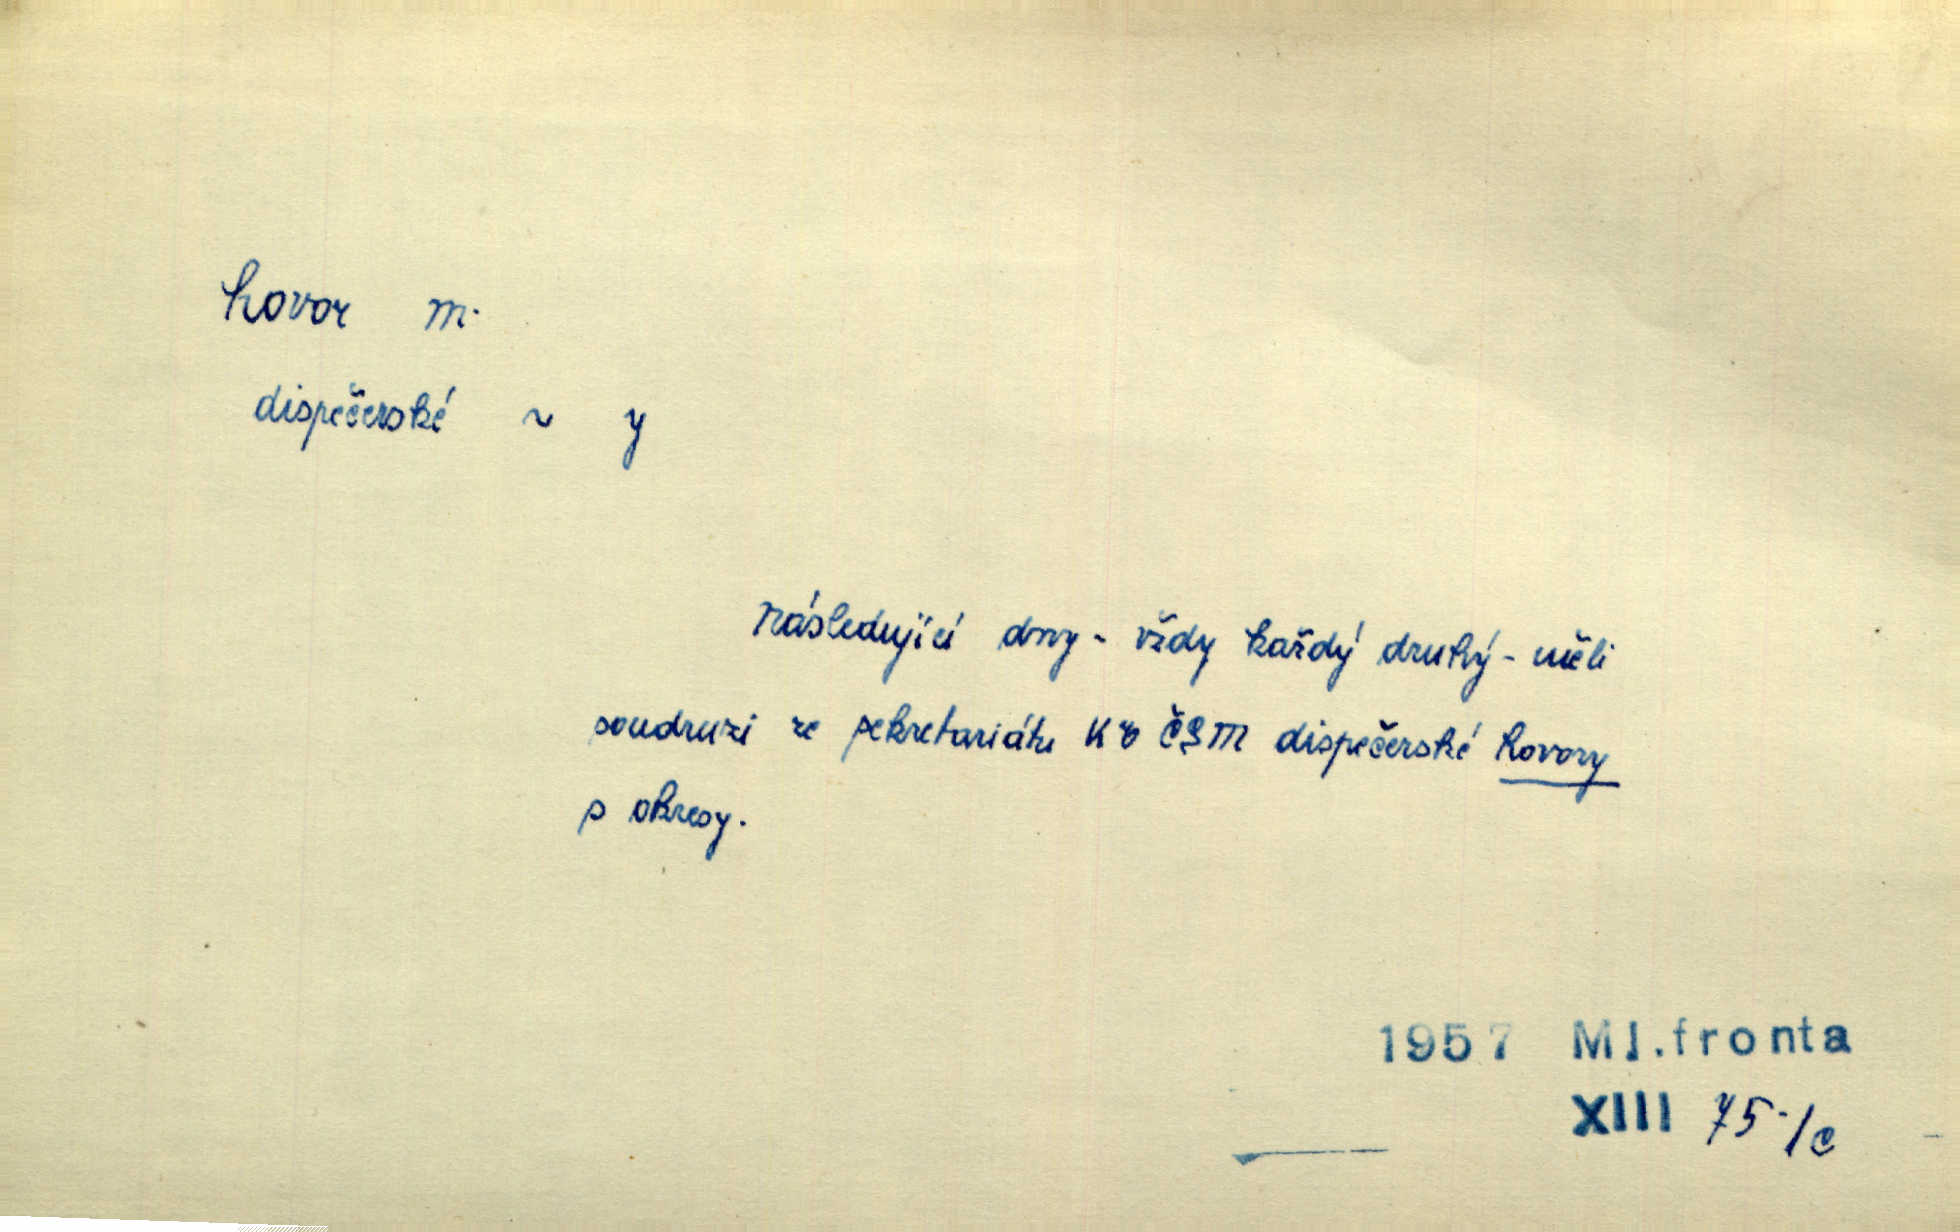 hovor m.
dispečerské ~ y
Následující dny - vždy každý druhý - měli
soudruzi ze sekretariátu KV ČSM dispečerské hovory
s okresy.
1957 Ml.fronta
XIII 75/c